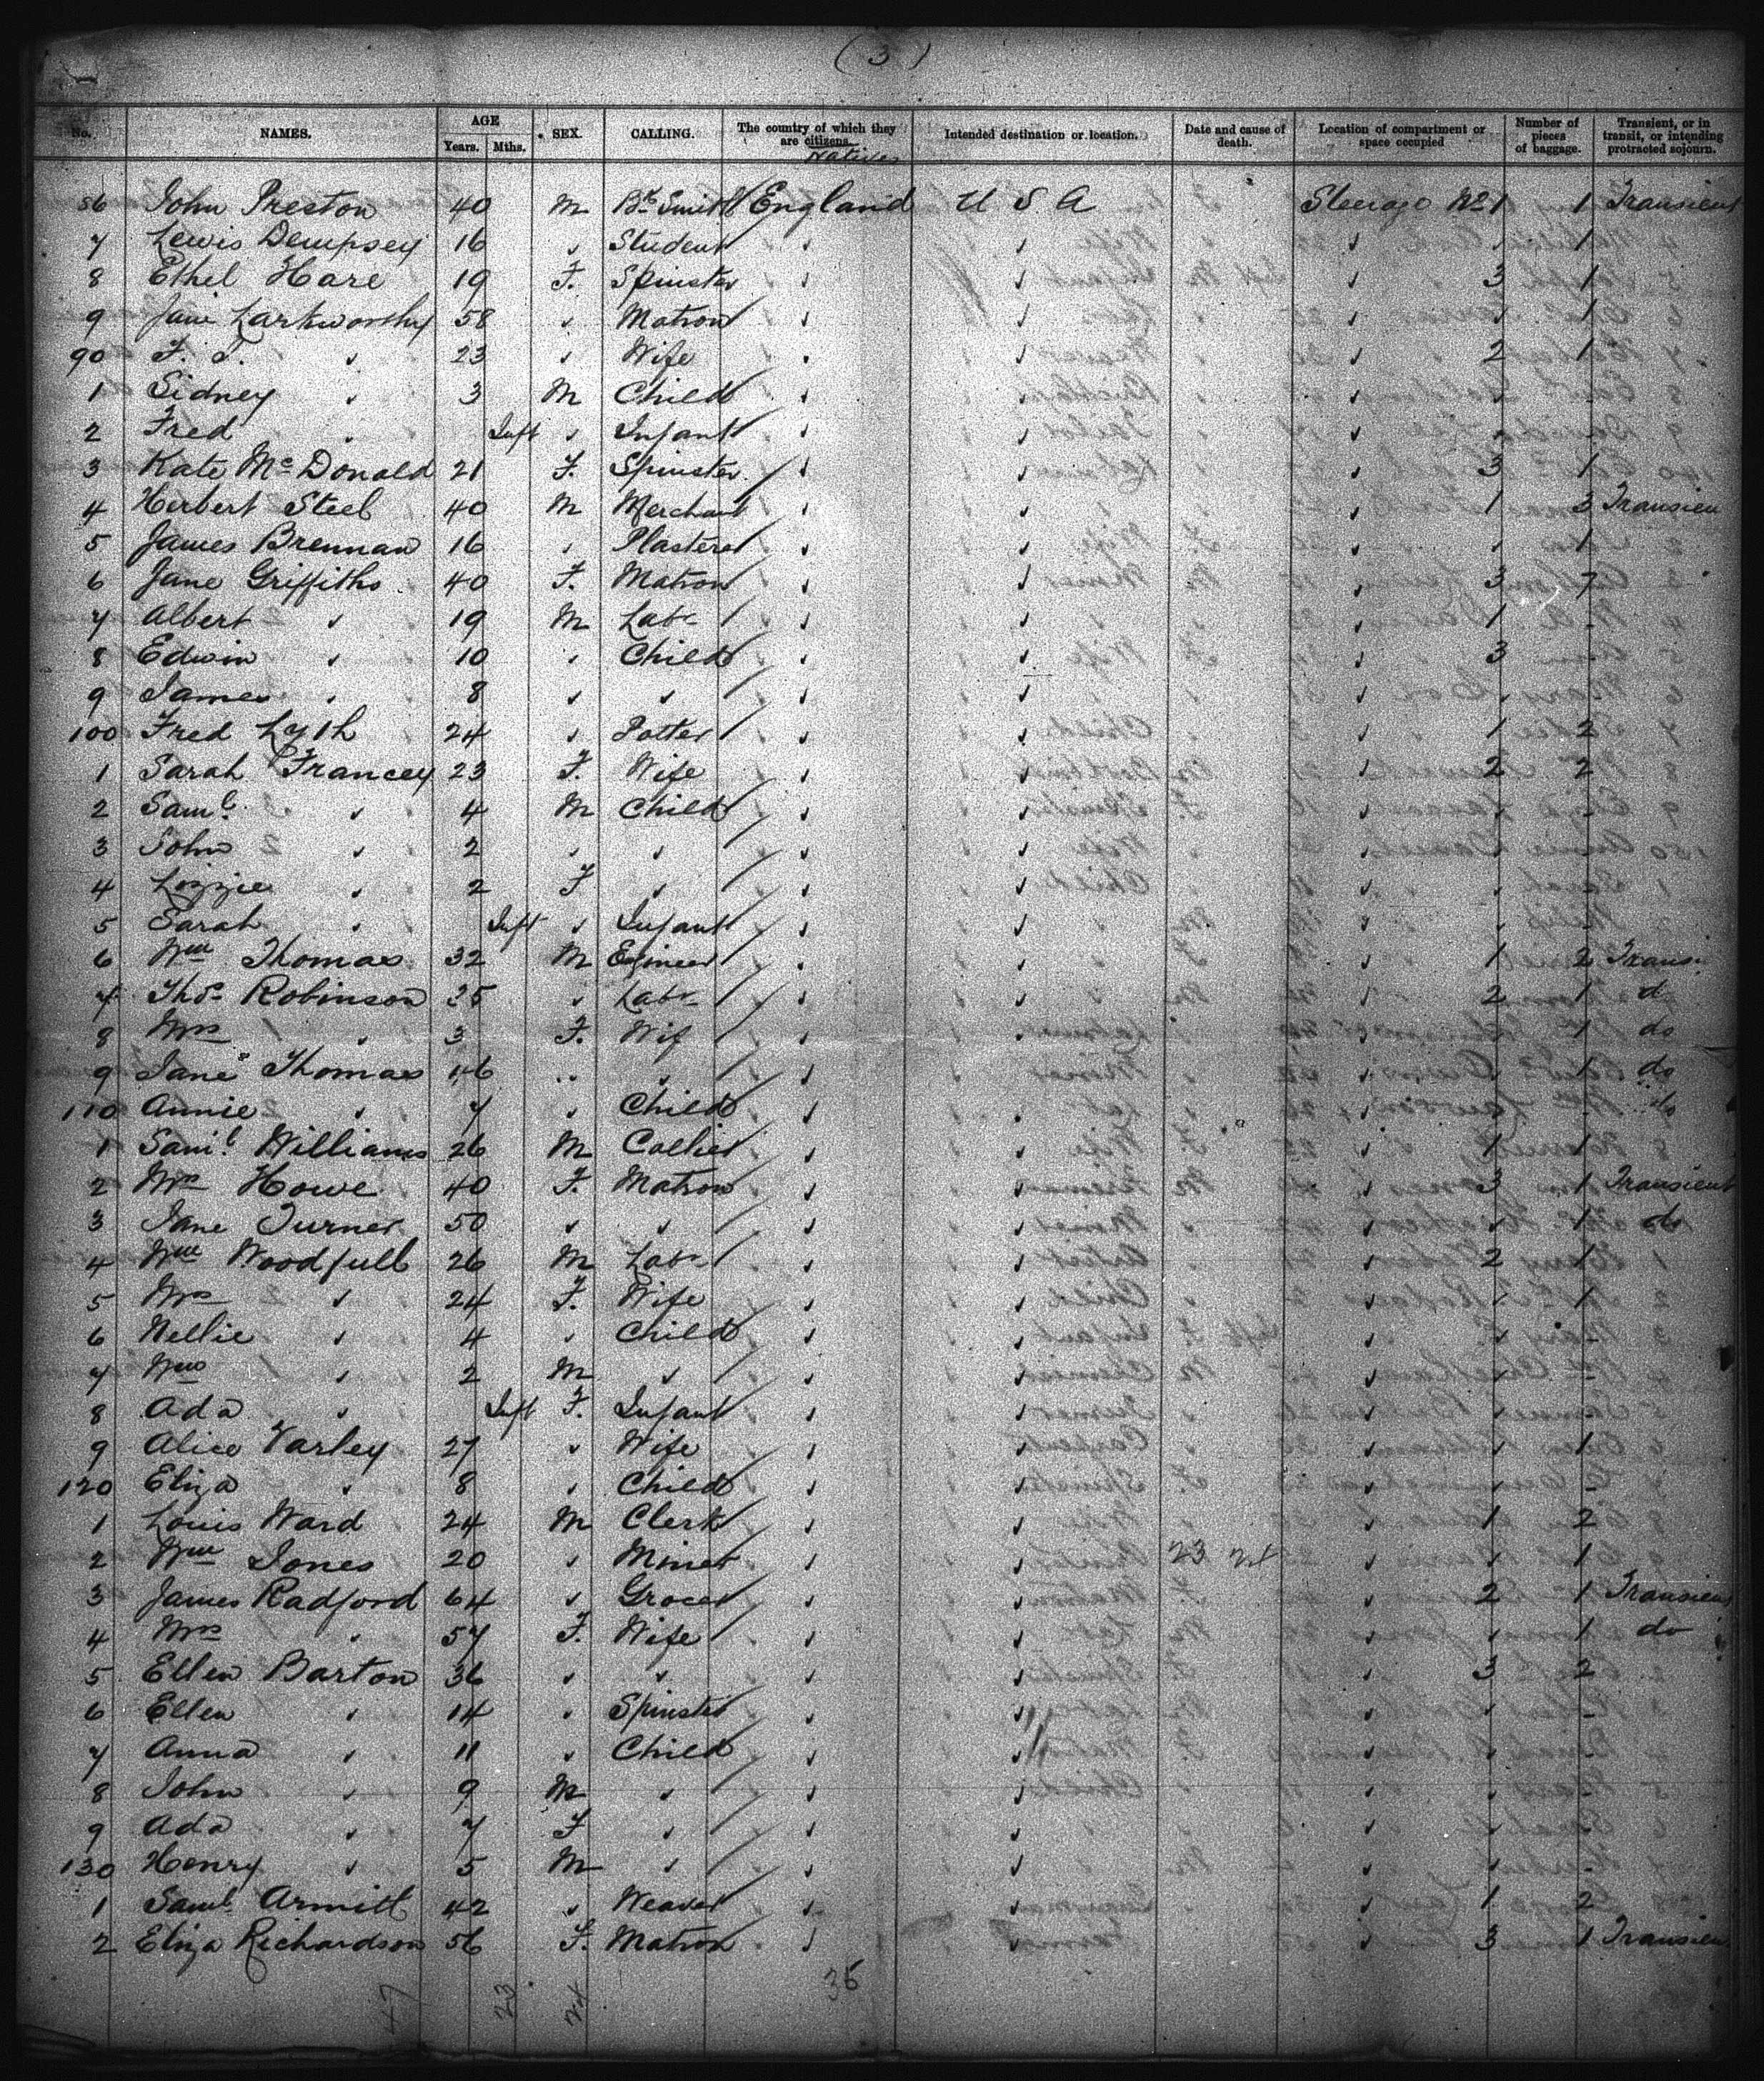 ( 3 )
No. NAMES. AGE Years. Mths. SEX. CALLING. The country of which they are citizens. Natives Intended destination or location. Date and cause of death. Location of compartment or space occupied Number of pieces of baggage. Transient, or in transit, or intending protracted sojourn.
86 John Preston 40 M Bk Smith England U S A Steerage No 1 1 Transient
7 Lewis Dempsey 16 " Student " " " " 1
8 Ethel Hare 19 F. Spinster " " " 3 1
9 Jane Larkworthy 58 " Matron " " " " 1
90 F. J. " 23 " Wife " " " 2 1
1 Sidney " 3 M Child " " " " -
2 Fred " Inft " Infant " " " " -
3 Kate McDonald 21 F. Spinster " " " 3 1
4 Herbert Steel 40 M Merchant " " " 1 3 Transien
5 James Brennan 16 " Plasterer " " " " 1
6 Jane Griffiths 40 F. Matron " " " 3 7
7 Albert " 19 M Labr " " " 1 -
8 Edwin " 10 " Child " " " 3 -
9 James " 8 " " " " " " -
100 Fred Lyth 24 " Potter " " " 1 2
1 Sarah Francey 23 F. Wife " " " 2 2
2 Saml " 4 M Child " " " " -
3 John " 2 " " " " " " -
4 Lizzie " 2 F " " " " " -
5 Sarah " Inft " Infant " " " " -
6 Wm Thomas 32 M Engineer " " " 1 2 Trans
7 Thos Robinson 35 " Labr " " " 2 1 d
8 Mrs " 3 F. Wif " " " " 1 do
9 Jane Thomas 46 " " " " " " 1 do
110 Annie " 7 " Child " " " " - do
1 Saml Williams 26 M Collier " " " 1 1
2 Mrs Howe 40 F. Matron " " " 3 1 Transient
3 Jane Turner 50 " " " " " " 1 do
4 Wm Woodfull 26 M Labr " " " 2 1
5 Mrs " 24 F. Wife " " " " 1
6 Nellie " 4 " Child " " " " -
7 Wm " 2 M " " " " " -
8 Ada " Inft F. Infant " " " " -
9 Alice Varley 27 " Wife " " " " 1
120 Eliza " 8 " Child " " " " -
1 Louis Ward 24 M Clerk " " " 1 2
2 Wm Jones 20 " Miner " " 23 24 " " 1
3 James Radford 64 " Grocer " " " 2 1 Transien
4 Mrs " 57 F. Wife " " " " 1 do
5 Ellen Barton 36 " " " " " 3 2
6 Ellen " 14 " Spinster " " " " -
7 Anna " 11 " Child " " " " -
8 John " 9 M " " " " " -
9 Ada " 7 F " " " " " -
130 Henry " 5 M " " " " " -
1 Saml Armitt 42 " Weaver " " " 1 2
2 Eliza Richardson 56 F. Matron " " " 3 1 Transien
47 23 24 35